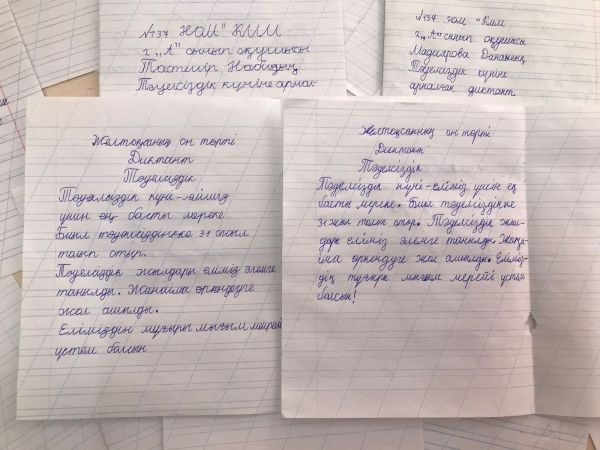 №137 ЖОМ" КММ
2 "А" сынып оқушысы
Тастемір Набидың
Тәуелсіздік күніне арнал-
№137 ЖОМ" Кмм
2 "А" сынып оқушысы
Мадиярова Дананың
Тәуелсіздік күніне
арналған диктант.
Желтоқсанның он төрті
Диктант
Тәуелсіздік
Тәуелсіздік күні-еліміз
үшін ең басты мереке
Биыл тәуелсіздікке 31 жыл
толып отыр.
Тәуелсіздік жылдары еліміз әлемге
танылды. Жаңаша өркендеуге
жол ашылды.
Еліміздің мұғыры мығым мерей
үстем болсын
Желтоқсанның он төрті
Диктант
Тәуелсіздік
Тәуелсіздік күні-еліміз үшін ең
басты мереке. Биыл тәуелсіздікке
31 жыл толып отыр. Тәуелсіздік жыл-
дары еліміз әлемге танылды. Жаңа-
ша өркендеуге жол ашылды. Елімiз-
дің тұғыры мығым мерейі үстем
болсын!